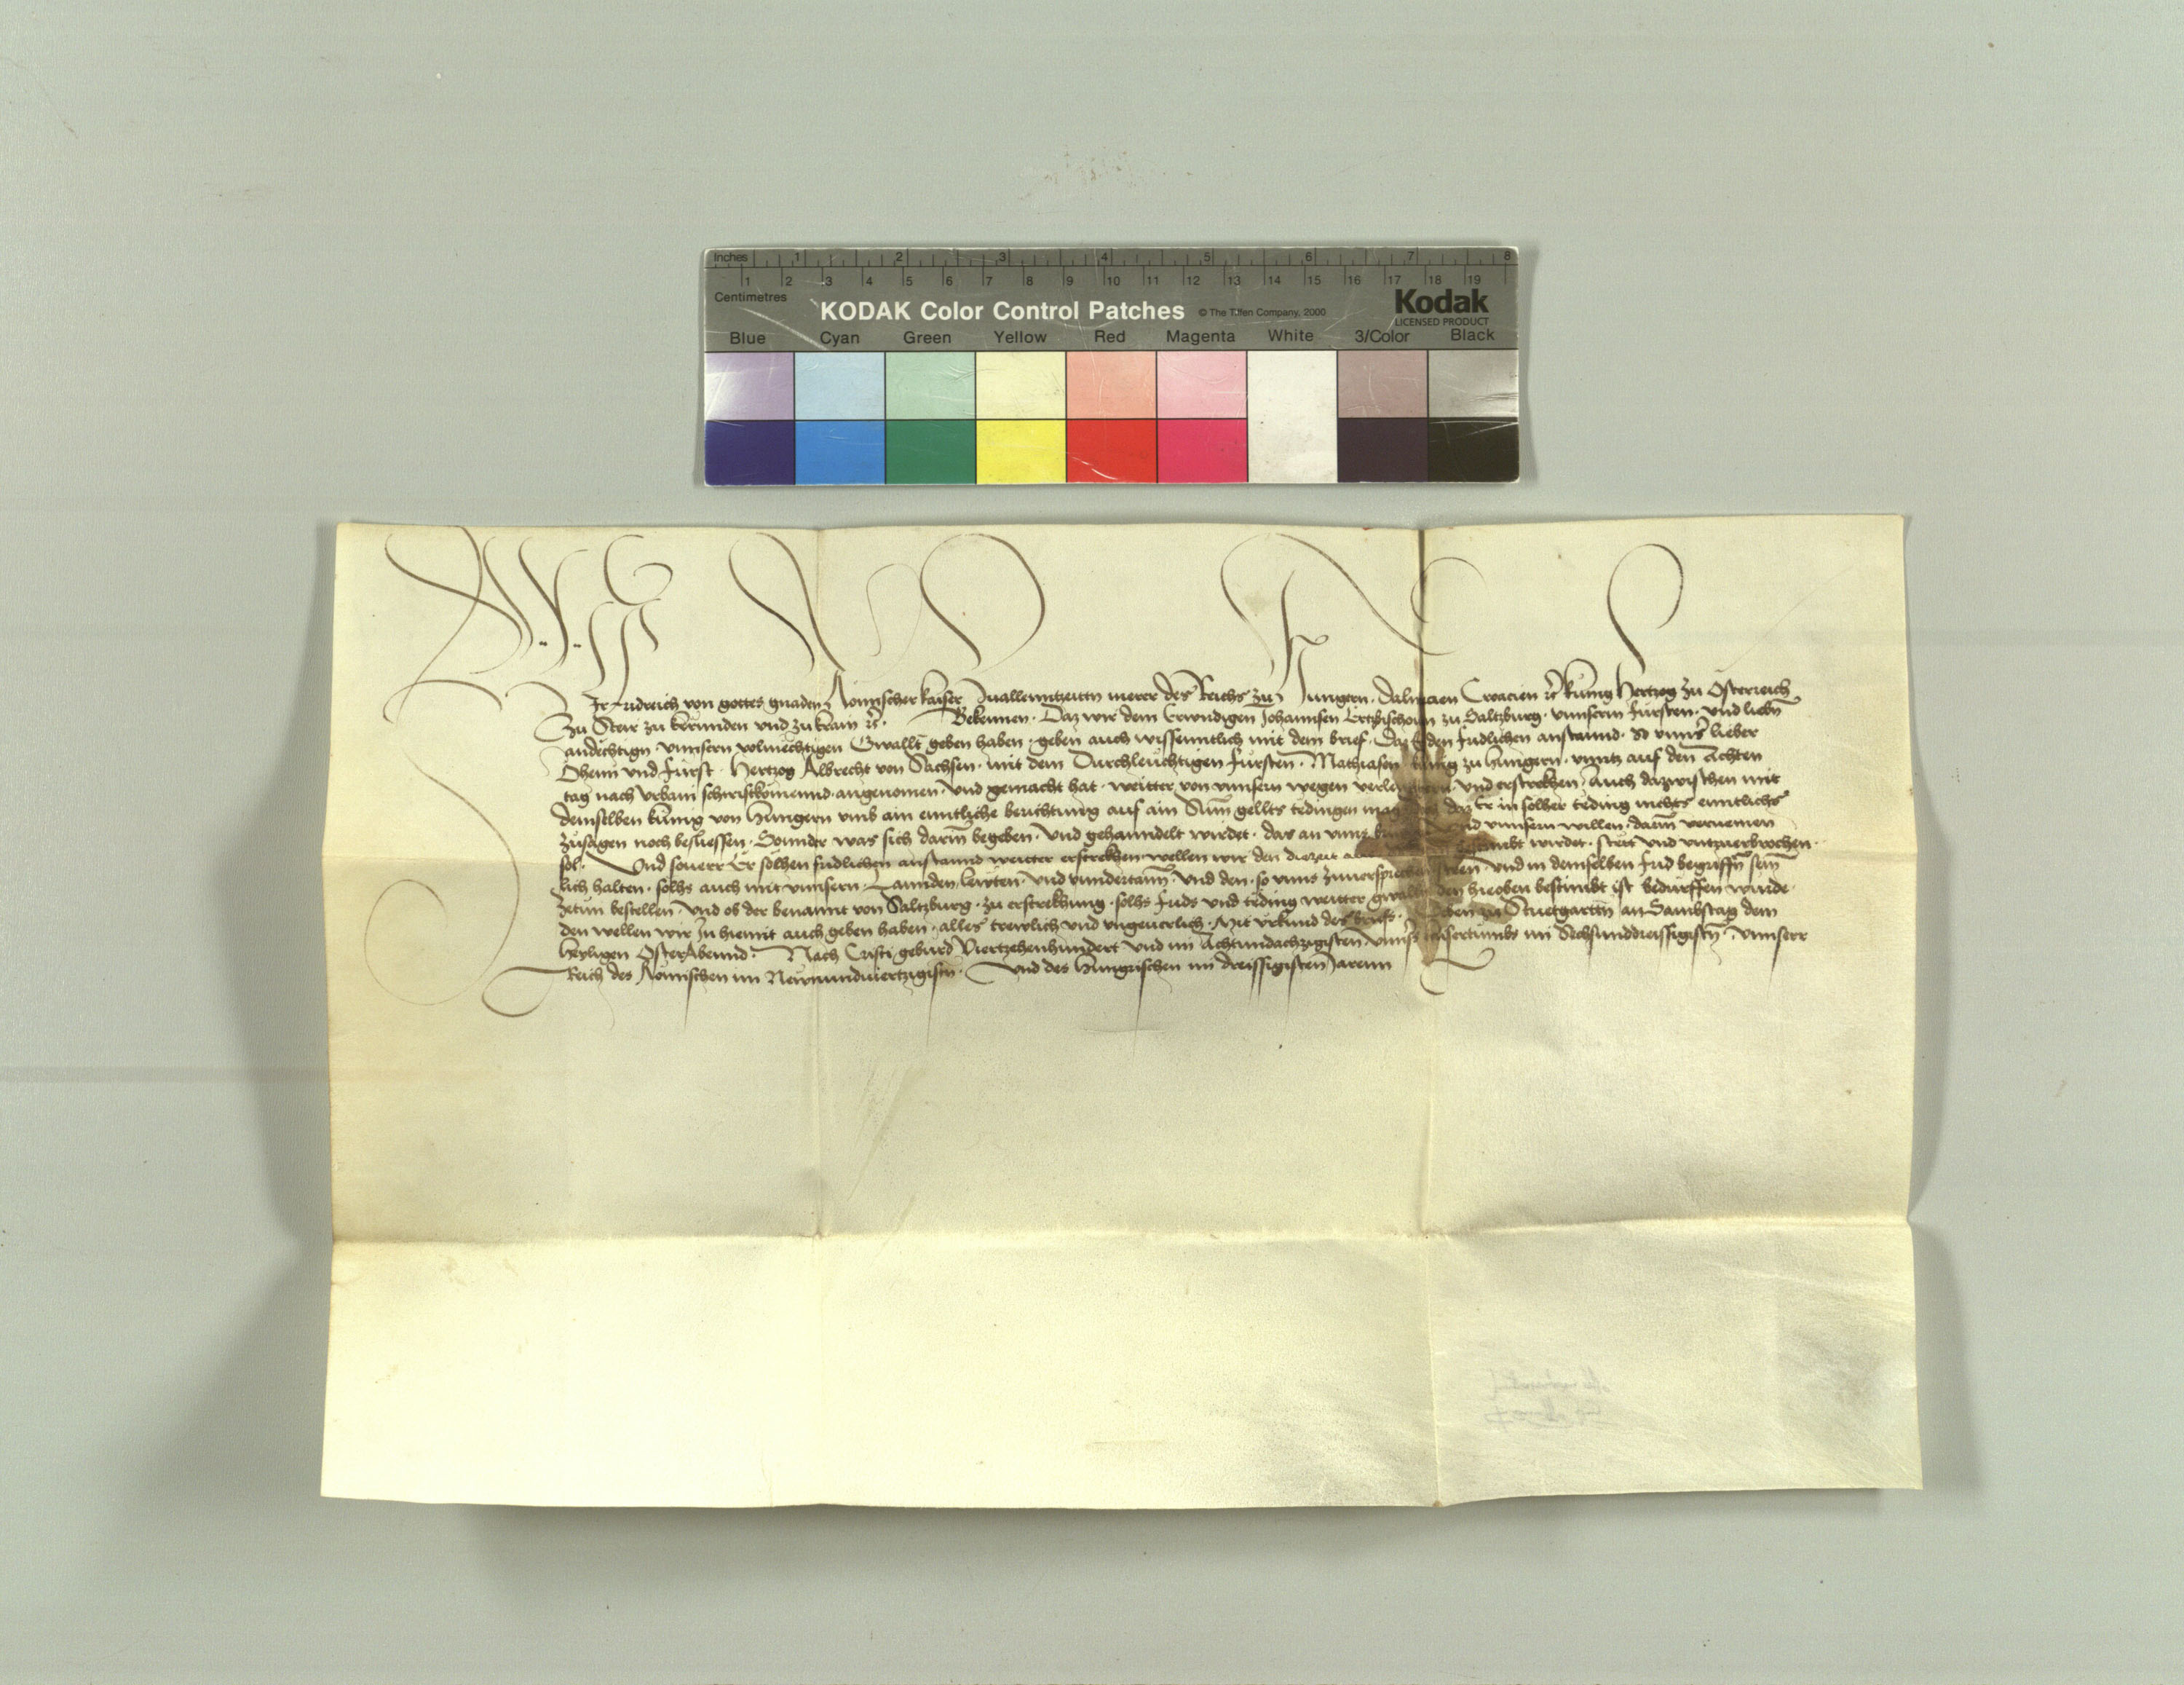 Inches 1 2 3 4 5 6 7 8
1 2 3 4 5 6 7 8 9 10 11 12 13 14 15 16 17 18 19
Centimetres
KODAK Color Control Patches © The Tiffen Company, 2000 Kodak
LICENSED PRODUCT
Blue Cyan Green Yellow Red Magenta White 3/Color Black
Wir Fridreich von gottes gnaden Römischer kaiser Zuallenntzeittn merer des Reichs zu Hungern Dalmacien Croacien etc kunig Hertzog zu Österreich
zu Steir zu kernnden vnd zu krain etc. Bekennen. Daz wir dem Erwirdigen Johannsen Ertzbischouen zu Saltzburg. vnnserm fürsten. vnd liebn
andechtign. vnnsern volmechtigen Gwallt geben haben. geben auch wissenntlich mit dem brief. Daz Er den fridlichen anstannd. So vnnser lieber
Öheim vnd Fürst. Hertzog Albrecht von Sachsen. mit dem Durchleuchtigen fürsten. Mathiasen kunig zu Hungern. vnntz auf den Achten
tag nach Vrbani schiristkomennd. angenomen. vnd gemacht hat. weitter von vnnsern wegen verlenngern. vnd erstrekhen. Auch dazwischen mit
demselben kunig von Hungern vmb ain enntliche berichtung auf ain Sum gellts tedingen mag. daz Er in solher teding nichts enntlichs
zusagen noch besliessen. Sonnder was sich darin begeben. vnd gehanndelt wirdet. das an vnns vnd vnnsern willen. darin vernemen
sol. Vnd souerr Er solhen fridlichen anstannd weitter erstrekhen. wellen wir den diezeit wirdet. stett vnd vntzuerbrochen.
lich halten. solhs auch mit vnnsern. Lannden. lewten. vnd vnndertann. vnd den. so vnns zuuersprechen steen. vnd in demselben frid begriffn sein
zetun bestellen. vnd ob der benannt von Saltzburg. zu erstrekhung. solhs frids vnd teding weitter gwallts den hieoben bestimbt ist bedürffen wurde.
den wellen wir Im hiemit auch geben haben. alles trewlich vnd vngeuerlich. Mit vrkund des briefs. Geben zu Stuetgarttn an Sambstag dem
heyligen OsterAbennd. Nach Cristi geburd Viertzehenhundert vnd im Achtundachzigisten. vnnsers kaisertumbs im Sechsunddreissigistn. vnnserr
Reich des Römischen im Newnundviertzigistn. vnd des Hungrischen im dreissigisten Jarenn